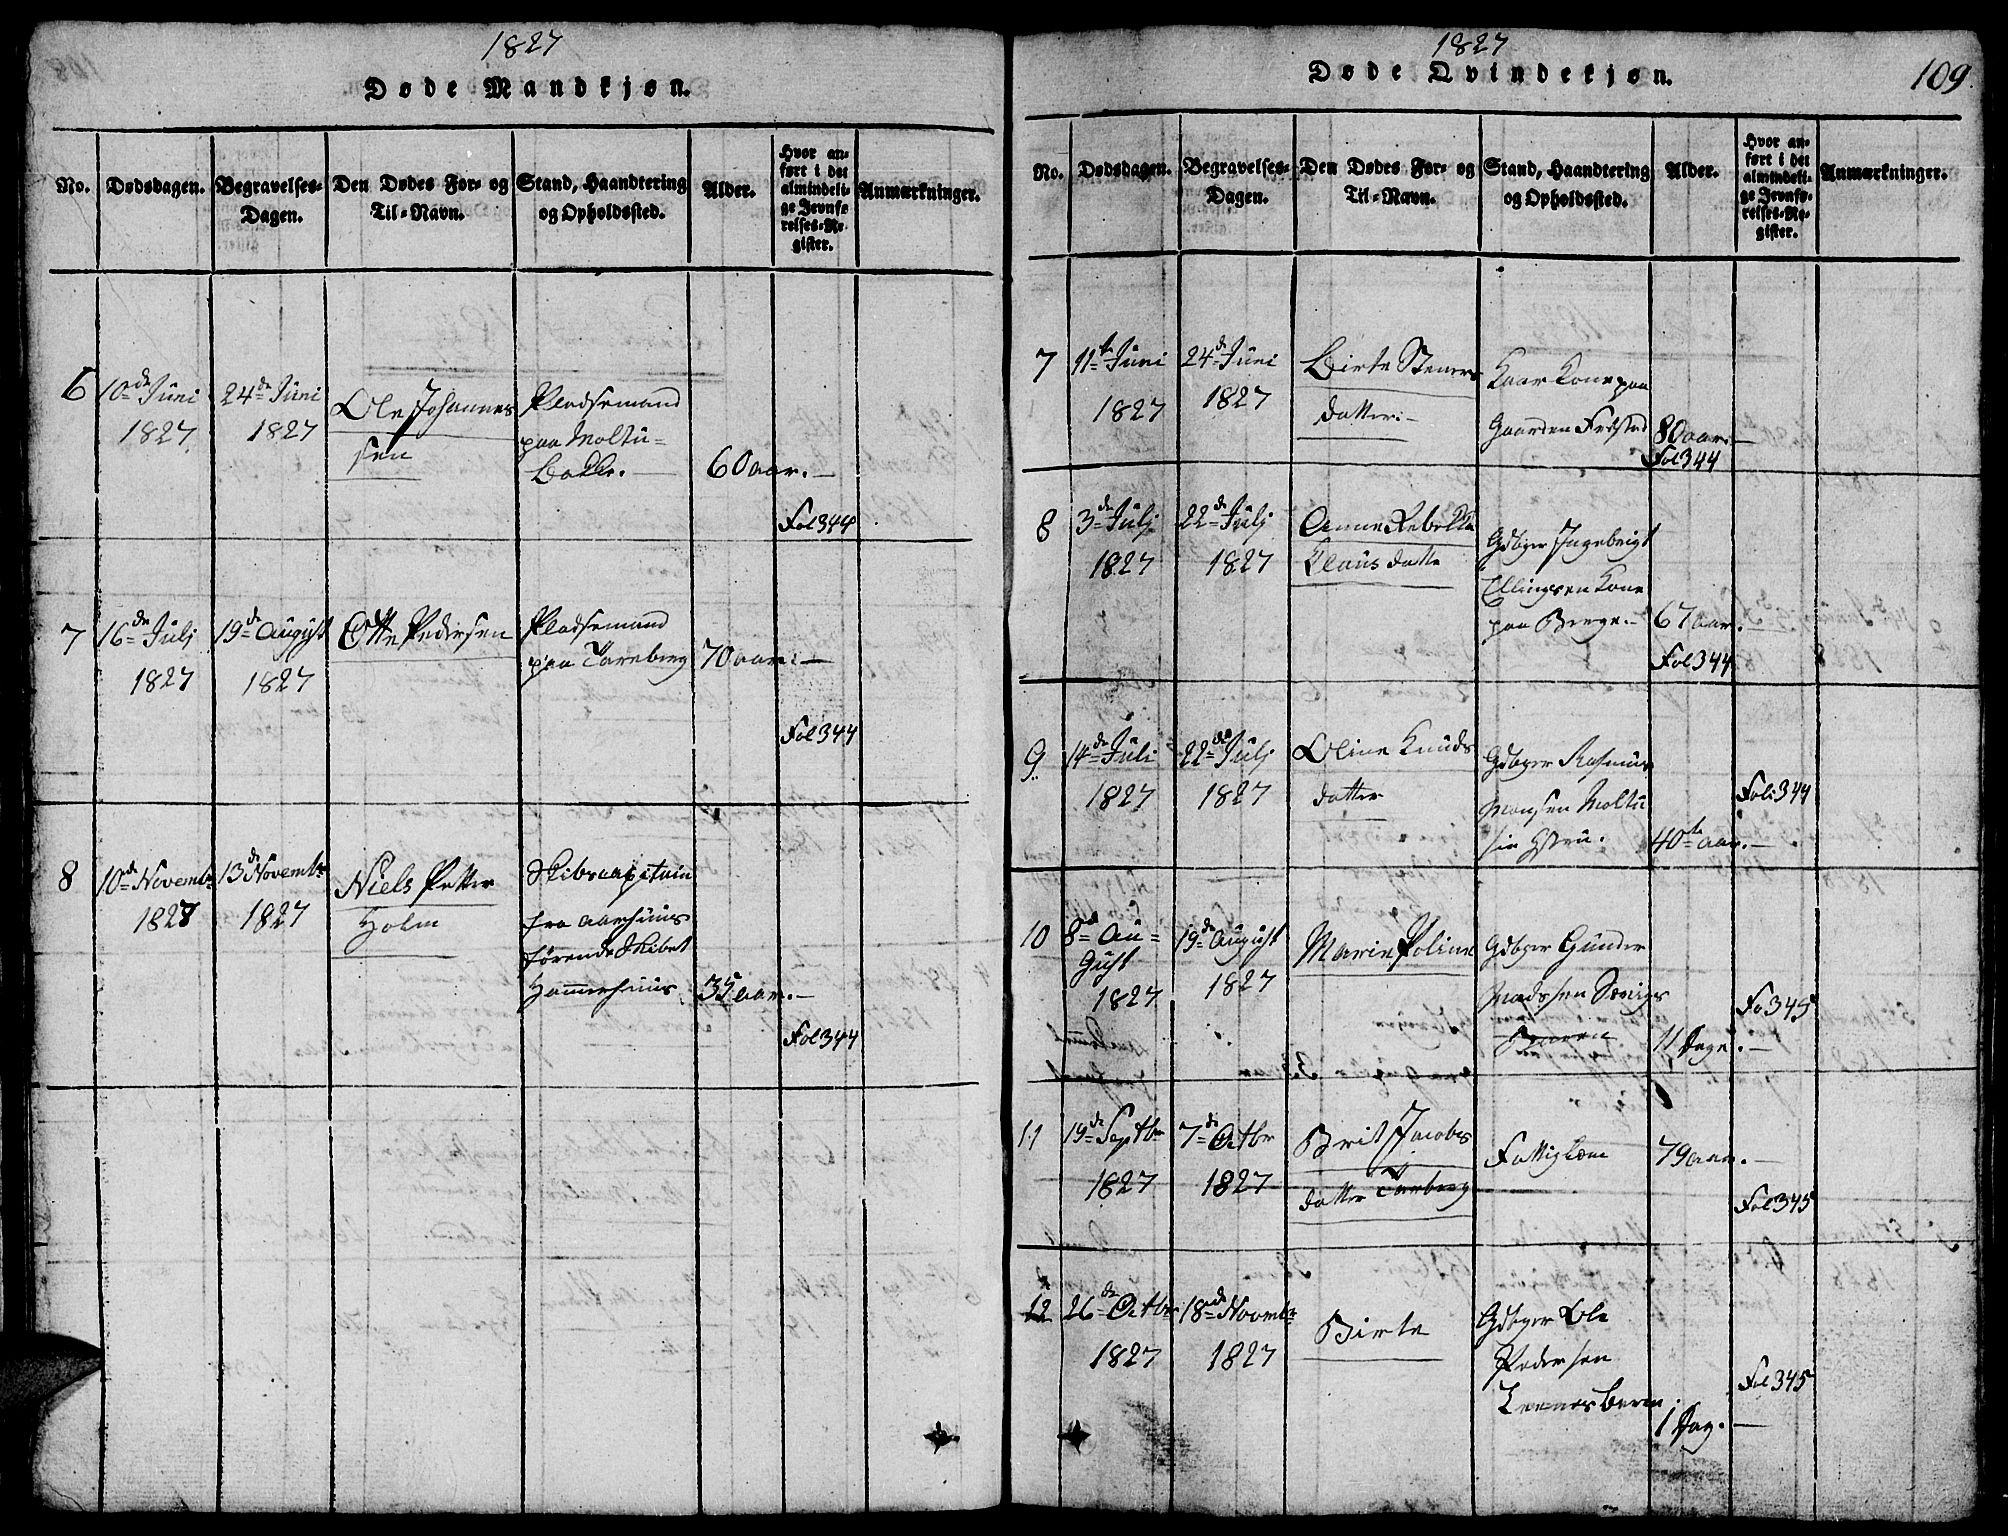 1827
Døde Mandkjøn.
No.
Dødsdagen.
Begravelses-
Dagen.
Den Dødes For- og
Til-Navn.
Stand, Haandtering
og Opholdssted.
Alder.
Hvor an-
ført i det
almindeli-
ge Jevnfø-
relses-Re-
gister.
Anmærkninger.
6
10de Juni
1827
24de Juni
1827
Ole Johannes
sen
Pladsemand
paa Moltu-
60 aar.
Fol 344
7
16de Julj
1827
19de August
1827
Otte Pedersen
Pladsemand
paa Tareberg
70 aar.
Fol 344
8
10de Novembr
1827
13de Novembr
1827
Niels Petter
Holm
Skibscapitain
fra Aarhuus
førende Skibet
Hammershuus
35 aar.
Fol 344
1827
109
Døde Qvindekjøn.
No.
Dødsdagen.
Begravelses-
Dagen.
Den Dødes For- og
Til-Navn.
Stand, Haandtering
og Opholdssted.
Alder.
Hvor an-
ført i det
almindeli-
ge Jevnfø-
relses-Re-
gister.
Anmærkninger.
7
11te Juni
1827
24de Juni
1827
Birte Steners
datter
Kaarkone paa
Gaarden
80 aar
Fol 344
8
3de Julj
1827
22de Julj
1827
Anne Rebekka
Klaus datte
Gdbger Ingebrigt
Ellingsen Kone
paa Berge
67 aar.
Fol 344
9
14de Juli
1827
22de Julj
1827
Oline Knuds
datter
Gdbger Rasmus
Monsen Moltu
40 aar.
Fol 344
10
8de Au-
gust
1827
19de August
1827
Marie Poline
Gdbger Gunder
Madssen
11 Dage.
Fo 345
11
19de Septbr
1827
7de Octbr
1827
Brit Jacobs
datter Tarberg
Fattiglem
79 aar.
Fol 345
12
26de Octbr
1827
18de Novembr
1827
Birte
Gdbger Ole
Pedersen
1 Dag.
Fol 345